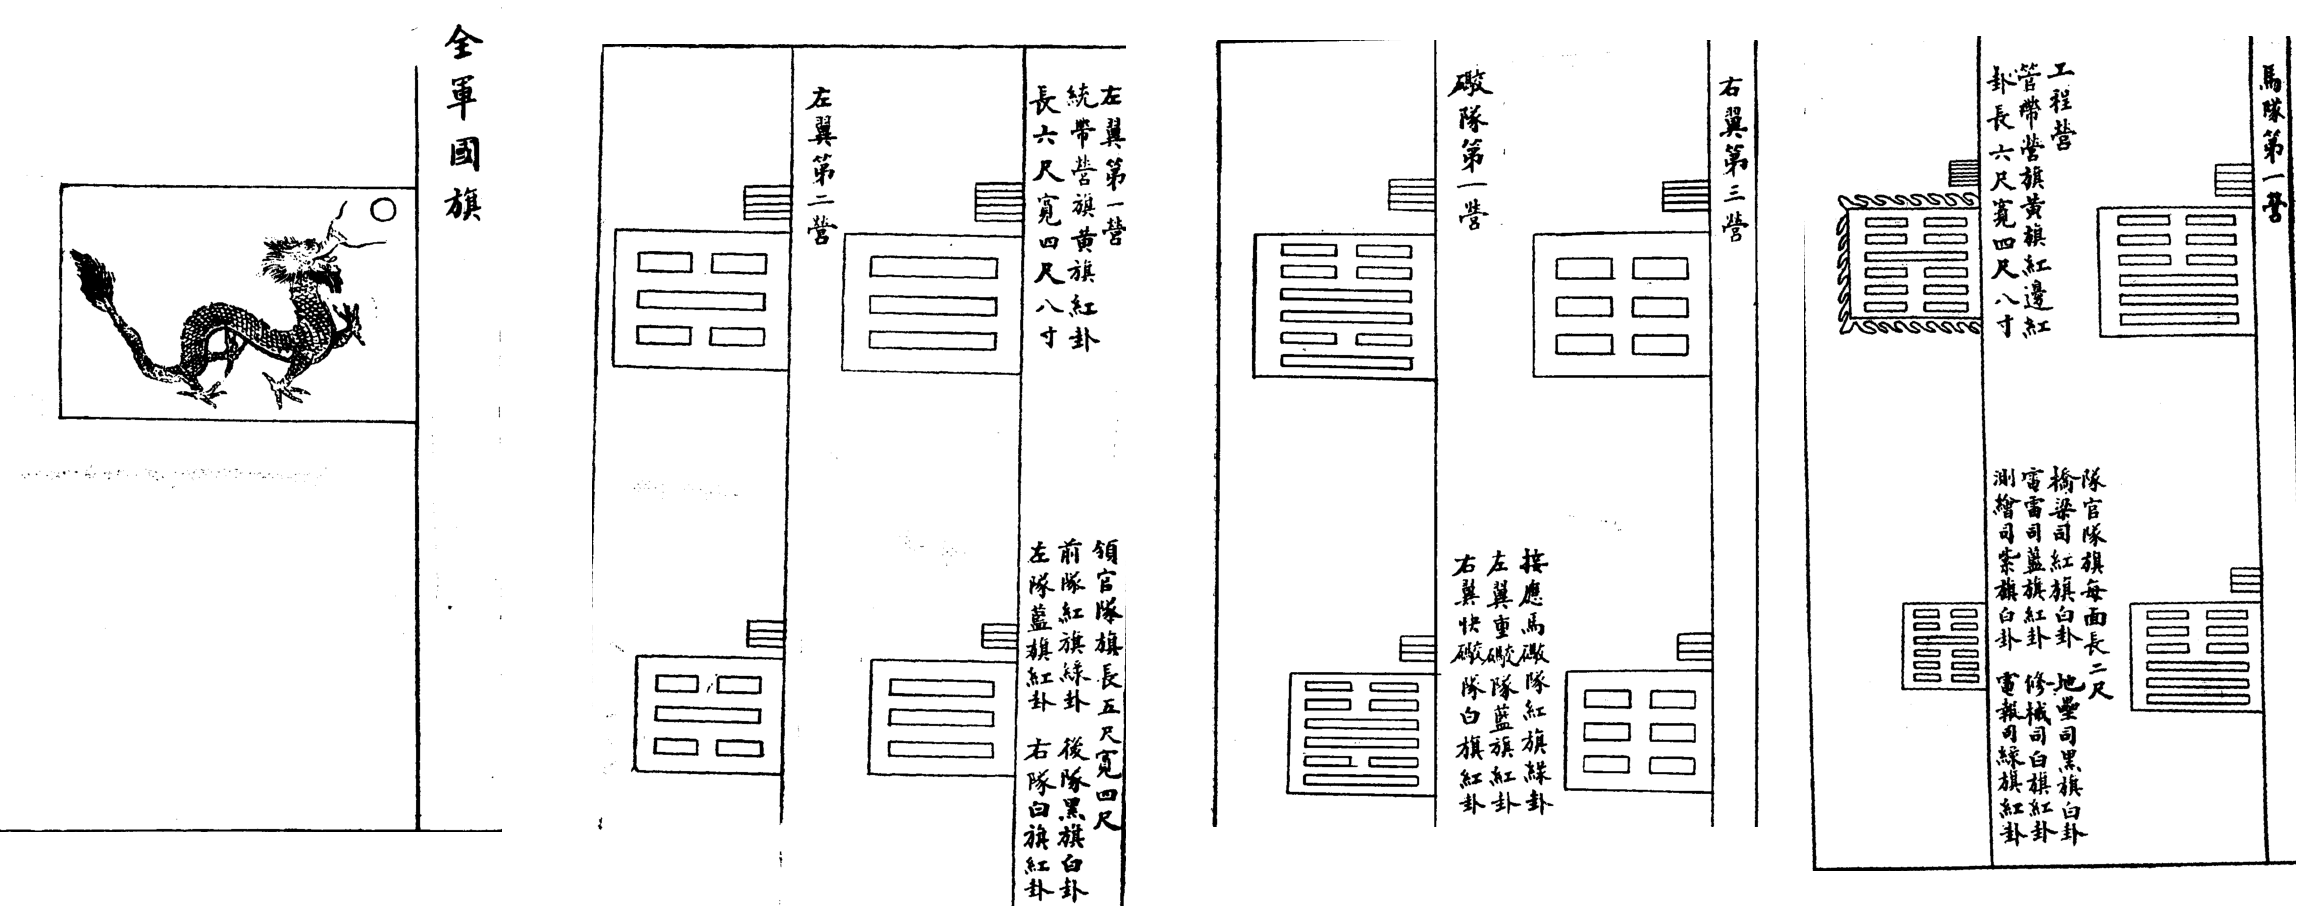 全軍國旗
左翼第一營
統帶營旗黃旗紅卦
長六尺寬四尺八寸
領官隊旗長五尺寬四尺
前隊紅旗綠卦 後隊黑旗白卦
左隊藍旗紅卦 右隊白旗紅卦
左翼第二營
右翼第三營
礮隊第一營
接應馬礮隊紅旗綠卦
左翼重礮隊藍旗紅卦
右翼快礮隊白旗紅卦
馬隊第一營
工程營
管帶營旗黃旗紅邊紅
卦長六尺寬四尺八寸
隊官隊旗每面長二尺
橋梁司紅旗白卦 地壘司黑旗白卦
電雷司藍旗紅卦 修械司白旗紅卦
測繪司紫旗白卦 電報司綠旗紅卦